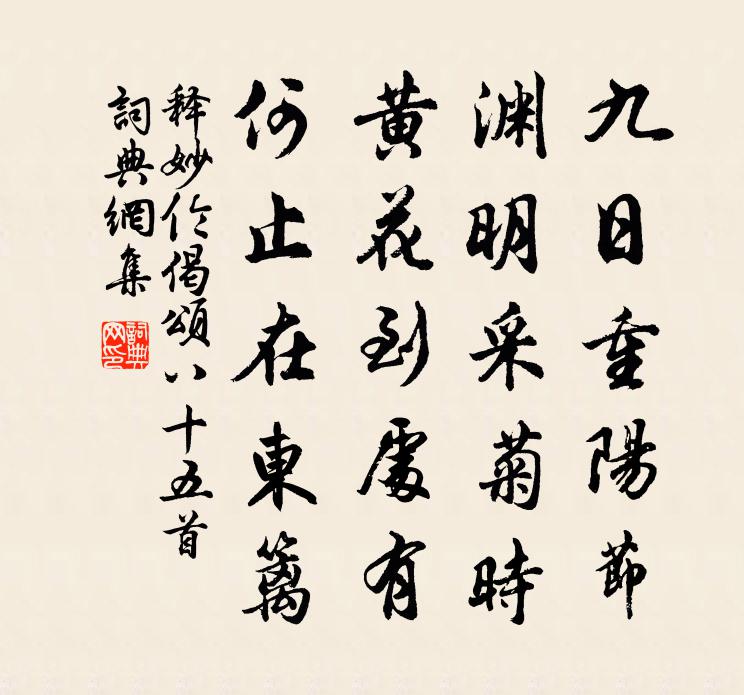 九日重陽節
淵明采菊時
黃花到處有
何止在東籬
释妙伦偈頌八十五首
詞典網集
詞典网印